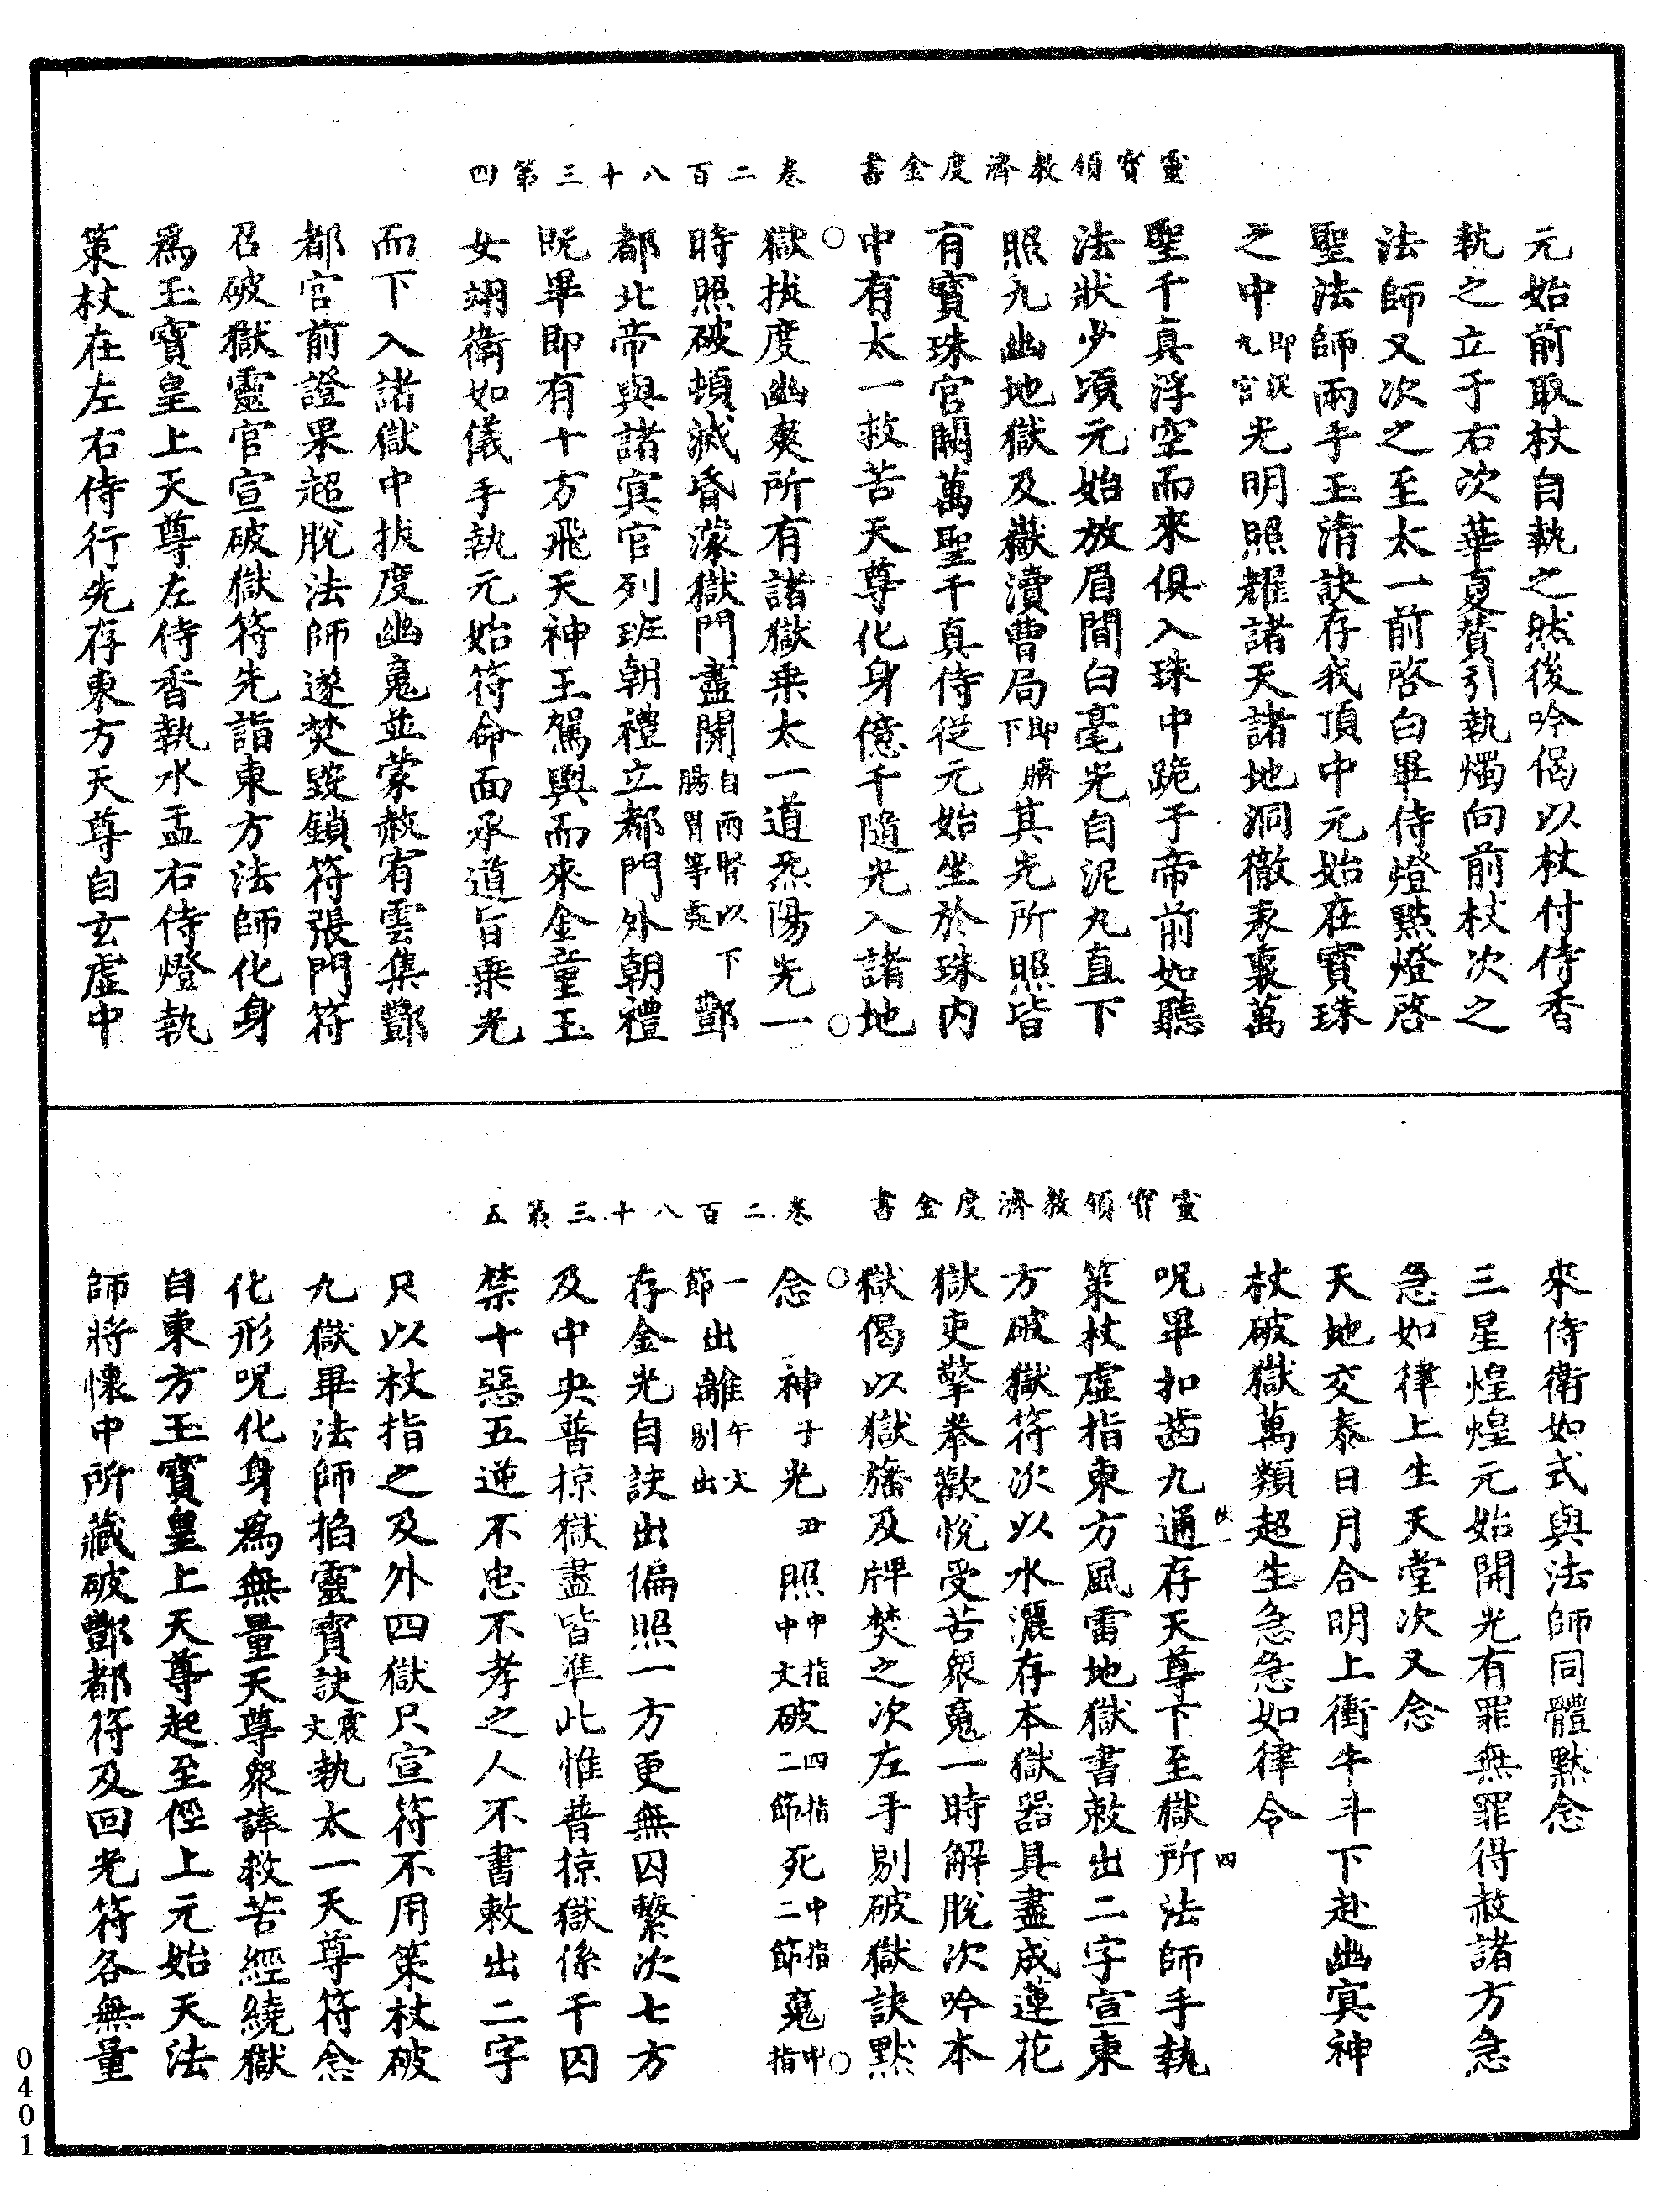 靈寶領教濟度金書 卷二百八十三第四
元始前取杖自執之然後吟偈以杖付侍香
執之立于右次華夏贊引執燭向前杖次之
法師又次之至太一前啓白畢侍燈點燈啓
聖法師兩手玉清訣存我頂中元始在寶珠
之中即泥丸宮光明照耀諸天諸地洞徹表裏萬
聖千真浮空而來俱入珠中跪于帝前如聽
法狀少頃元始放眉間白毫光自泥丸直下
照九幽地獄及嶽瀆曹局即臍下其光所照皆
有寶珠宮闕萬聖千真侍從元始坐於珠內
中有太一救苦天尊化身億千隨光入諸地
獄拔度幽爽所有諸獄乗太一道炁陽光一
時照破頓滅昏濛獄門盡開自兩腎以下腸胃等處酆
都北帝與諸冥官列班朝禮立都門外朝禮
既畢即有十方飛天神王駕輿而來金童玉
女翊衛如儀手執元始符命面承道旨乗光
而下入諸獄中拔度幽魂並蒙赦宥雲集酆
都宮前證果超脫法師遂焚毀鎖符張門符
召破獄靈官宣破獄符先詣東方法師化身
爲玉寶皇上天尊左侍香執水盂右侍燈執
策杖在左右侍行先存東方天尊自玄虛中
靈寶領教濟度金書 卷二百八十三第五
來侍衛如式與法師同體默念
三星煌煌元始開光有罪無罪得赦諸方急
急如律上生天堂次又念
天地交泰日月合明上衝牛斗下赴幽冥神
杖破獄萬類超生急急如律令
呪畢扣齒九通存天尊下至獄所法師手執
策杖虛指東方風雷地獄書敕出二字宣東
方破獄符次以水灑存本獄器具盡成蓮花
獄吏擎拳歡悅受苦衆魂一時解脫次吟本
獄偈以獄旛及牌焚之次左手剔破獄訣默
念一神子光丑照中指中文破四指二節死中指二節魂中指
一節出離午文剔出
存金光自訣出徧照一方更無囚繫次七方
及中央普掠獄盡皆準此惟普掠獄係干囚
禁十惡五逆不忠不孝之人不書敕出二字
只以杖指之及外四獄只宣符不用策杖破
九獄畢法師掐靈寶訣震文執太一天尊符念
化形呪化身爲無量天尊衆諱救苦經繞獄
自東方玉寶皇上天尊起至徑上元始天法
師將懷中所藏破酆都符及回光符各無量
0401